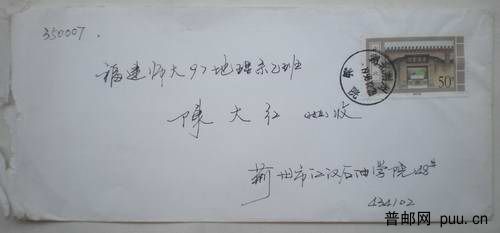 350007.
福建师大97地理系乙班
陈大红 收
荆州市江汉石油学院48#
434102
50分
普邮网 puu.cn